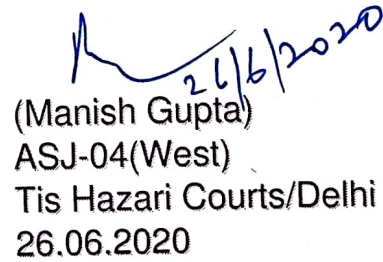 26/6/2020
(Manish Gupta)
ASJ-04(West)
Tis Hazari Courts/Delhi
26.06.2020